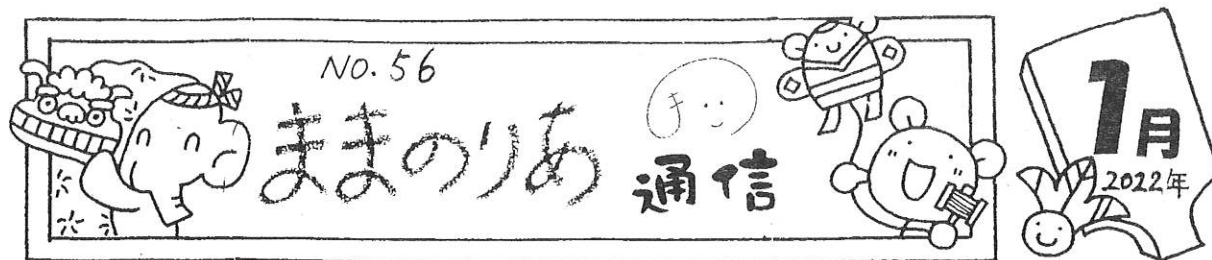 NO.56
ままのりあ 通信
ま
1月
2022年